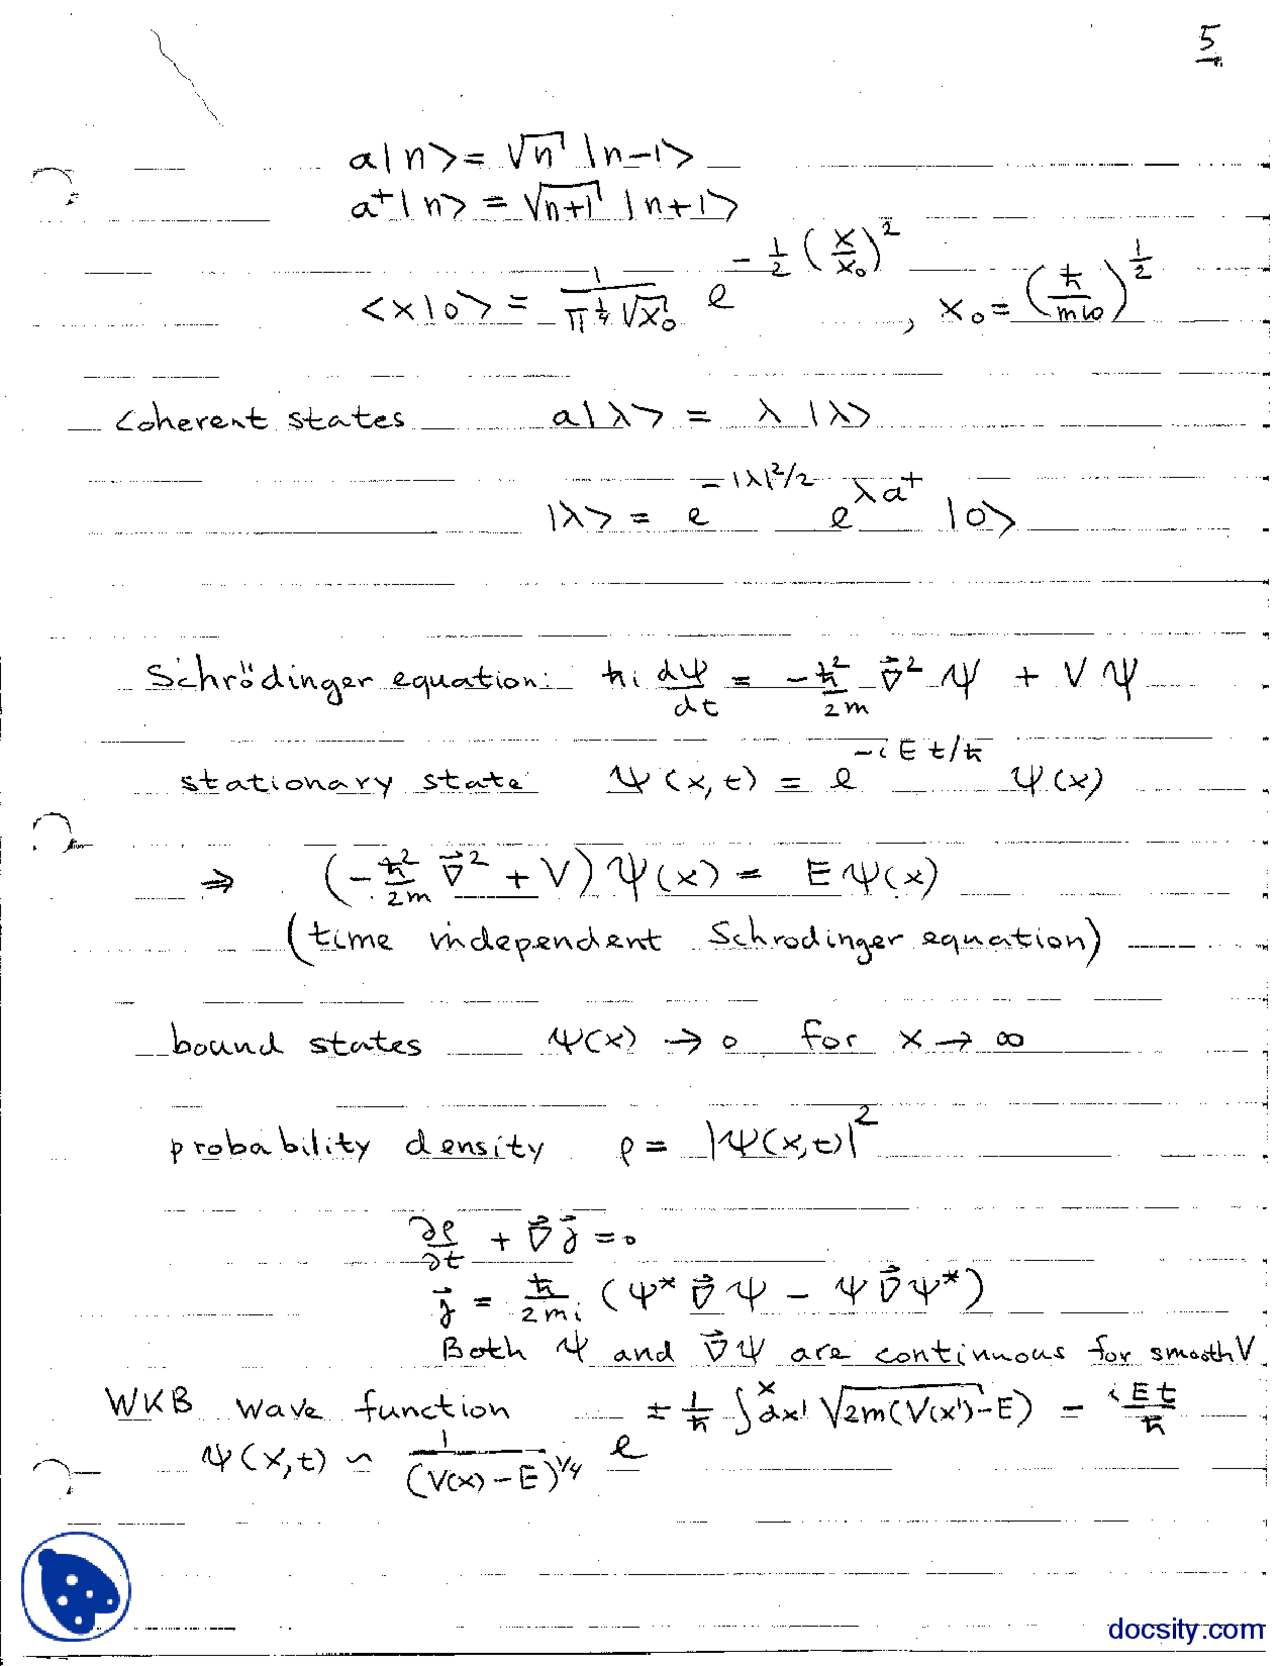 5
a|n> = √n |n-1>
a⁺|n> = √(n+1) |n+1>
<x|0> = 1/(π^(1/4) √x₀) e^(-1/2 (x/x₀)²) , x₀ = (ħ/mω)^(1/2)
Coherent states a|λ> = λ |λ>
|λ> = e^(-|λ|²/2) e^(λa⁺) |0>
Schrödinger equation: ħi dψ/dt = -ħ²/2m ∇⃗² ψ + V ψ
stationary state ψ(x,t) = e^(-iEt/ħ) ψ(x)
⇒ (-ħ²/2m ∇⃗² + V) ψ(x) = E ψ(x)
(time independent Schrodinger equation)
bound states ψ(x) → 0 for x → ∞
probability density ρ = |ψ(x,t)|²
∂ρ/∂t + ∇⃗ j⃗ = 0
j⃗ = ħ/2mi (ψ* ∇⃗ ψ - ψ ∇⃗ ψ*)
Both ψ and ∇⃗ψ are continuous for smooth V
WKB wave function
ψ(x,t) ~ 1/(V(x)-E)^(1/4) e^(± 1/ħ ∫^x dx' √(2m(V(x')-E)) - iEt/ħ)
docsity.com